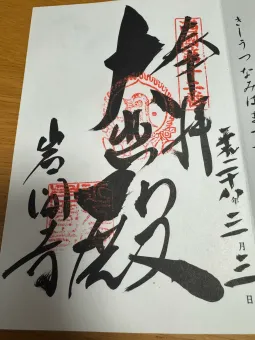 きしうつなみはまつ
奉拝
平成二十八年三月三日
大悲殿
岩間寺